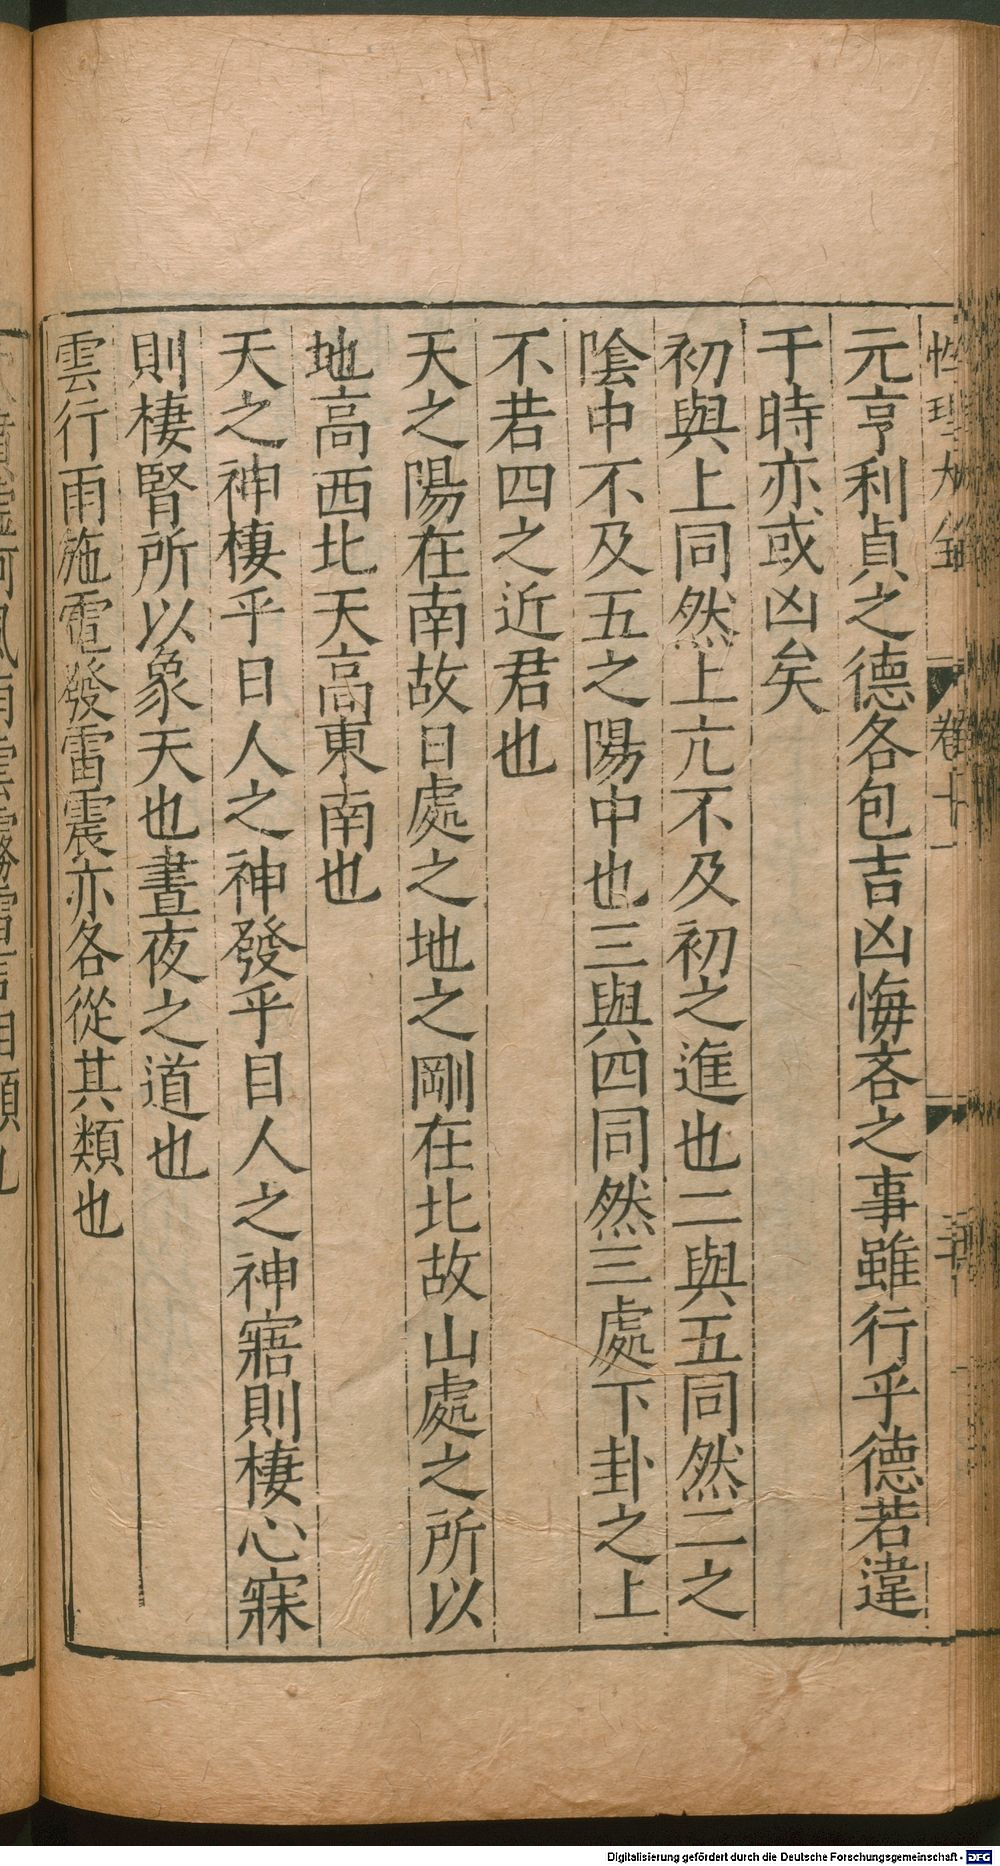 性理大全 卷十一
元亨利貞之德各包吉凶悔吝之事雖行乎德若違
于時亦或凶矣
初與上同然上亢不及初之進也二與五同然二之
陰中不及五之陽中也三與四同然三處下卦之上
不若四之近君也
天之陽在南故日處之地之剛在北故山處之所以
地高西北天高東南也
天之神棲乎日人之神發乎目人之神寤則棲心寐
則棲腎所以象天也晝夜之道也
雲行雨施電發雷震亦各從其類也
Digitalisierung gefördert durch die Deutsche Forschungsgemeinschaft - DFG